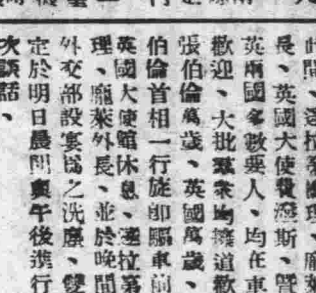 此間、達拉第總理、龐萊
長、英國大使費浦斯、暨
英兩國多數要人、均在車
歡迎、大批羣衆均擁道歡
張伯倫萬歲、英國萬歲、
伯倫首相一行旋卽驅車前
英國大使館休息、達拉第
理、龐萊外長、並於晚間
外交部設宴爲之洗塵、雙
定於明日晨間與午後進行
次談話、